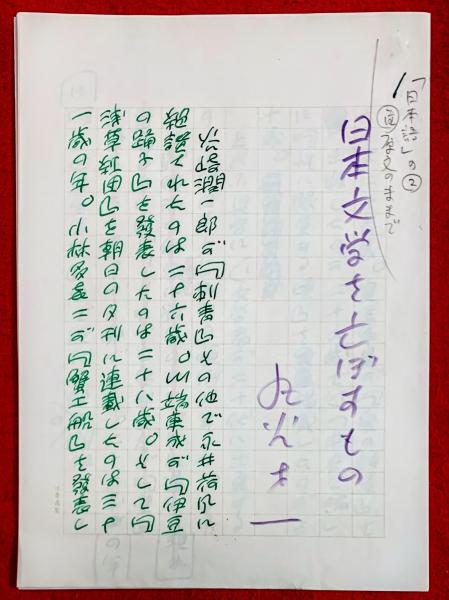 「日本語」の②
原文のままで
日本文学を亡ぼすもの
丸谷才一
谷崎潤一郎が『刺青』その他で永井荷風に
されたのは二十六歳。川端康成が『伊豆
の踊子』を發表したのは二十八歳。そして『
浅草紅団』を朝日の夕刊に連載したのは三十
一歳の年。小林多喜二が『蟹工船』を發表し